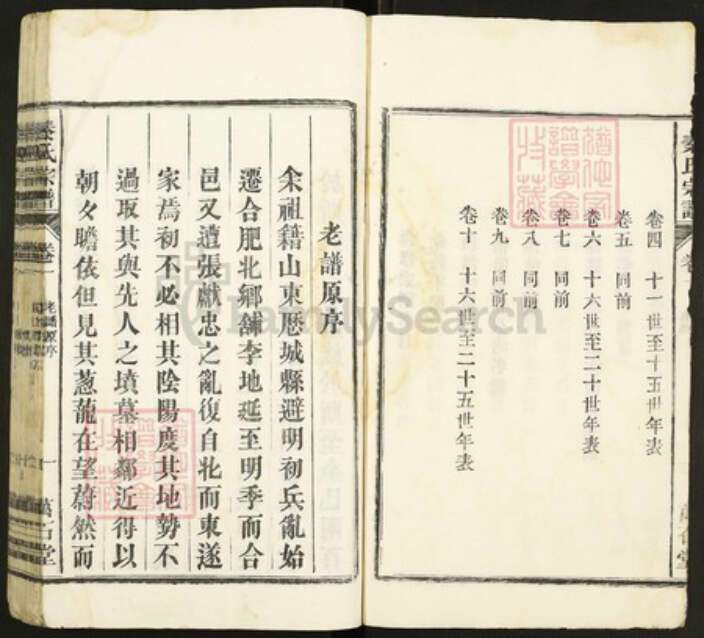 卷四 十一世至十五世年表
卷五 同前
卷六 十六世至二十世年表
卷七 同前
卷八 同前
卷九 同前
卷十 十六世至二十五世年表
老譜原序
余祖籍山東歷城縣避明初兵亂始
遷合肥北鄉舖李地延至明季而合
邑又遭張獻忠之亂復自北而東遂
家焉初不必相其陰陽度其地勢不
過取其與先人之墳墓相鄰近得以
朝々瞻依但見其蔥蘢在望蔚然而
氏宗譜 卷一 老譜原序 一 萬石堂
FamilySearch